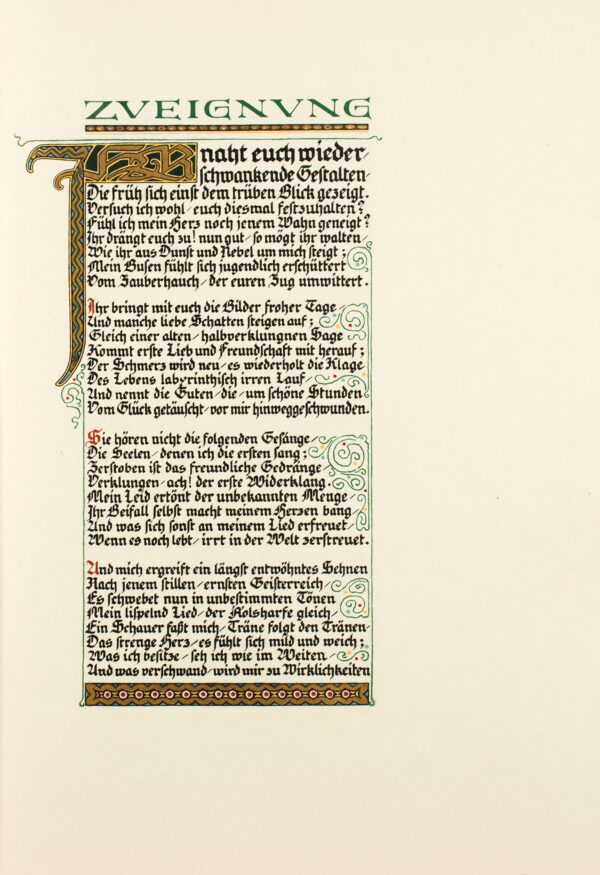 ZVEIGNVNG
IHR naht euch wieder/
schwankende Gestalten/
Die früh sich einst dem trüben Blick gezeigt.
Versuch ich wohl/ euch diesmal festzuhalten?
Fühl ich mein Herz noch jenem Wahn geneigt?
Ihr drängt euch zu! nun gut/ so mögt ihr walten/
Wie ihr aus Dunst und Nebel um mich steigt;
Mein Busen fühlt sich jugendlich erschüttert
Vom Zauberhauch/ der euren Zug umwittert.
Ihr bringt mit euch die Bilder froher Tage/
Und manche liebe Schatten steigen auf;
Gleich einer alten/ halbverklungnen Sage
Kommt erste Lieb und Freundschaft mit herauf;
Der Schmerz wird neu/ es wiederholt die Klage
Des Lebens labyrinthisch irren Lauf/
Und nennt die Guten/ die/ um schöne Stunden
Vom Glück getäuscht/ vor mir hinweggeschwunden.
Sie hören nicht die folgenden Gesänge/
Die Seelen/ denen ich die ersten sang;
Zerstoben ist das freundliche Gedränge/
Verklungen/ ach! der erste Widerklang.
Mein Leid ertönt der unbekannten Menge/
Ihr Beifall selbst macht meinem Herzen bang/
Und was sich sonst an meinem Lied erfreuet/
Wenn es noch lebt/ irrt in der Welt zerstreuet.
Und mich ergreift ein längst entwöhntes Sehnen
Nach jenem stillen/ ernsten Geisterreich/
Es schwebet nun in unbestimmten Tönen
Mein lispelnd Lied/ der Äolsharfe gleich/
Ein Schauer faßt mich/ Träne folgt den Tränen/
Das strenge Herz/ es fühlt sich mild und weich;
Was ich besitze/ seh ich wie im Weiten/
Und was verschwand/ wird mir zu Wirklichkeiten